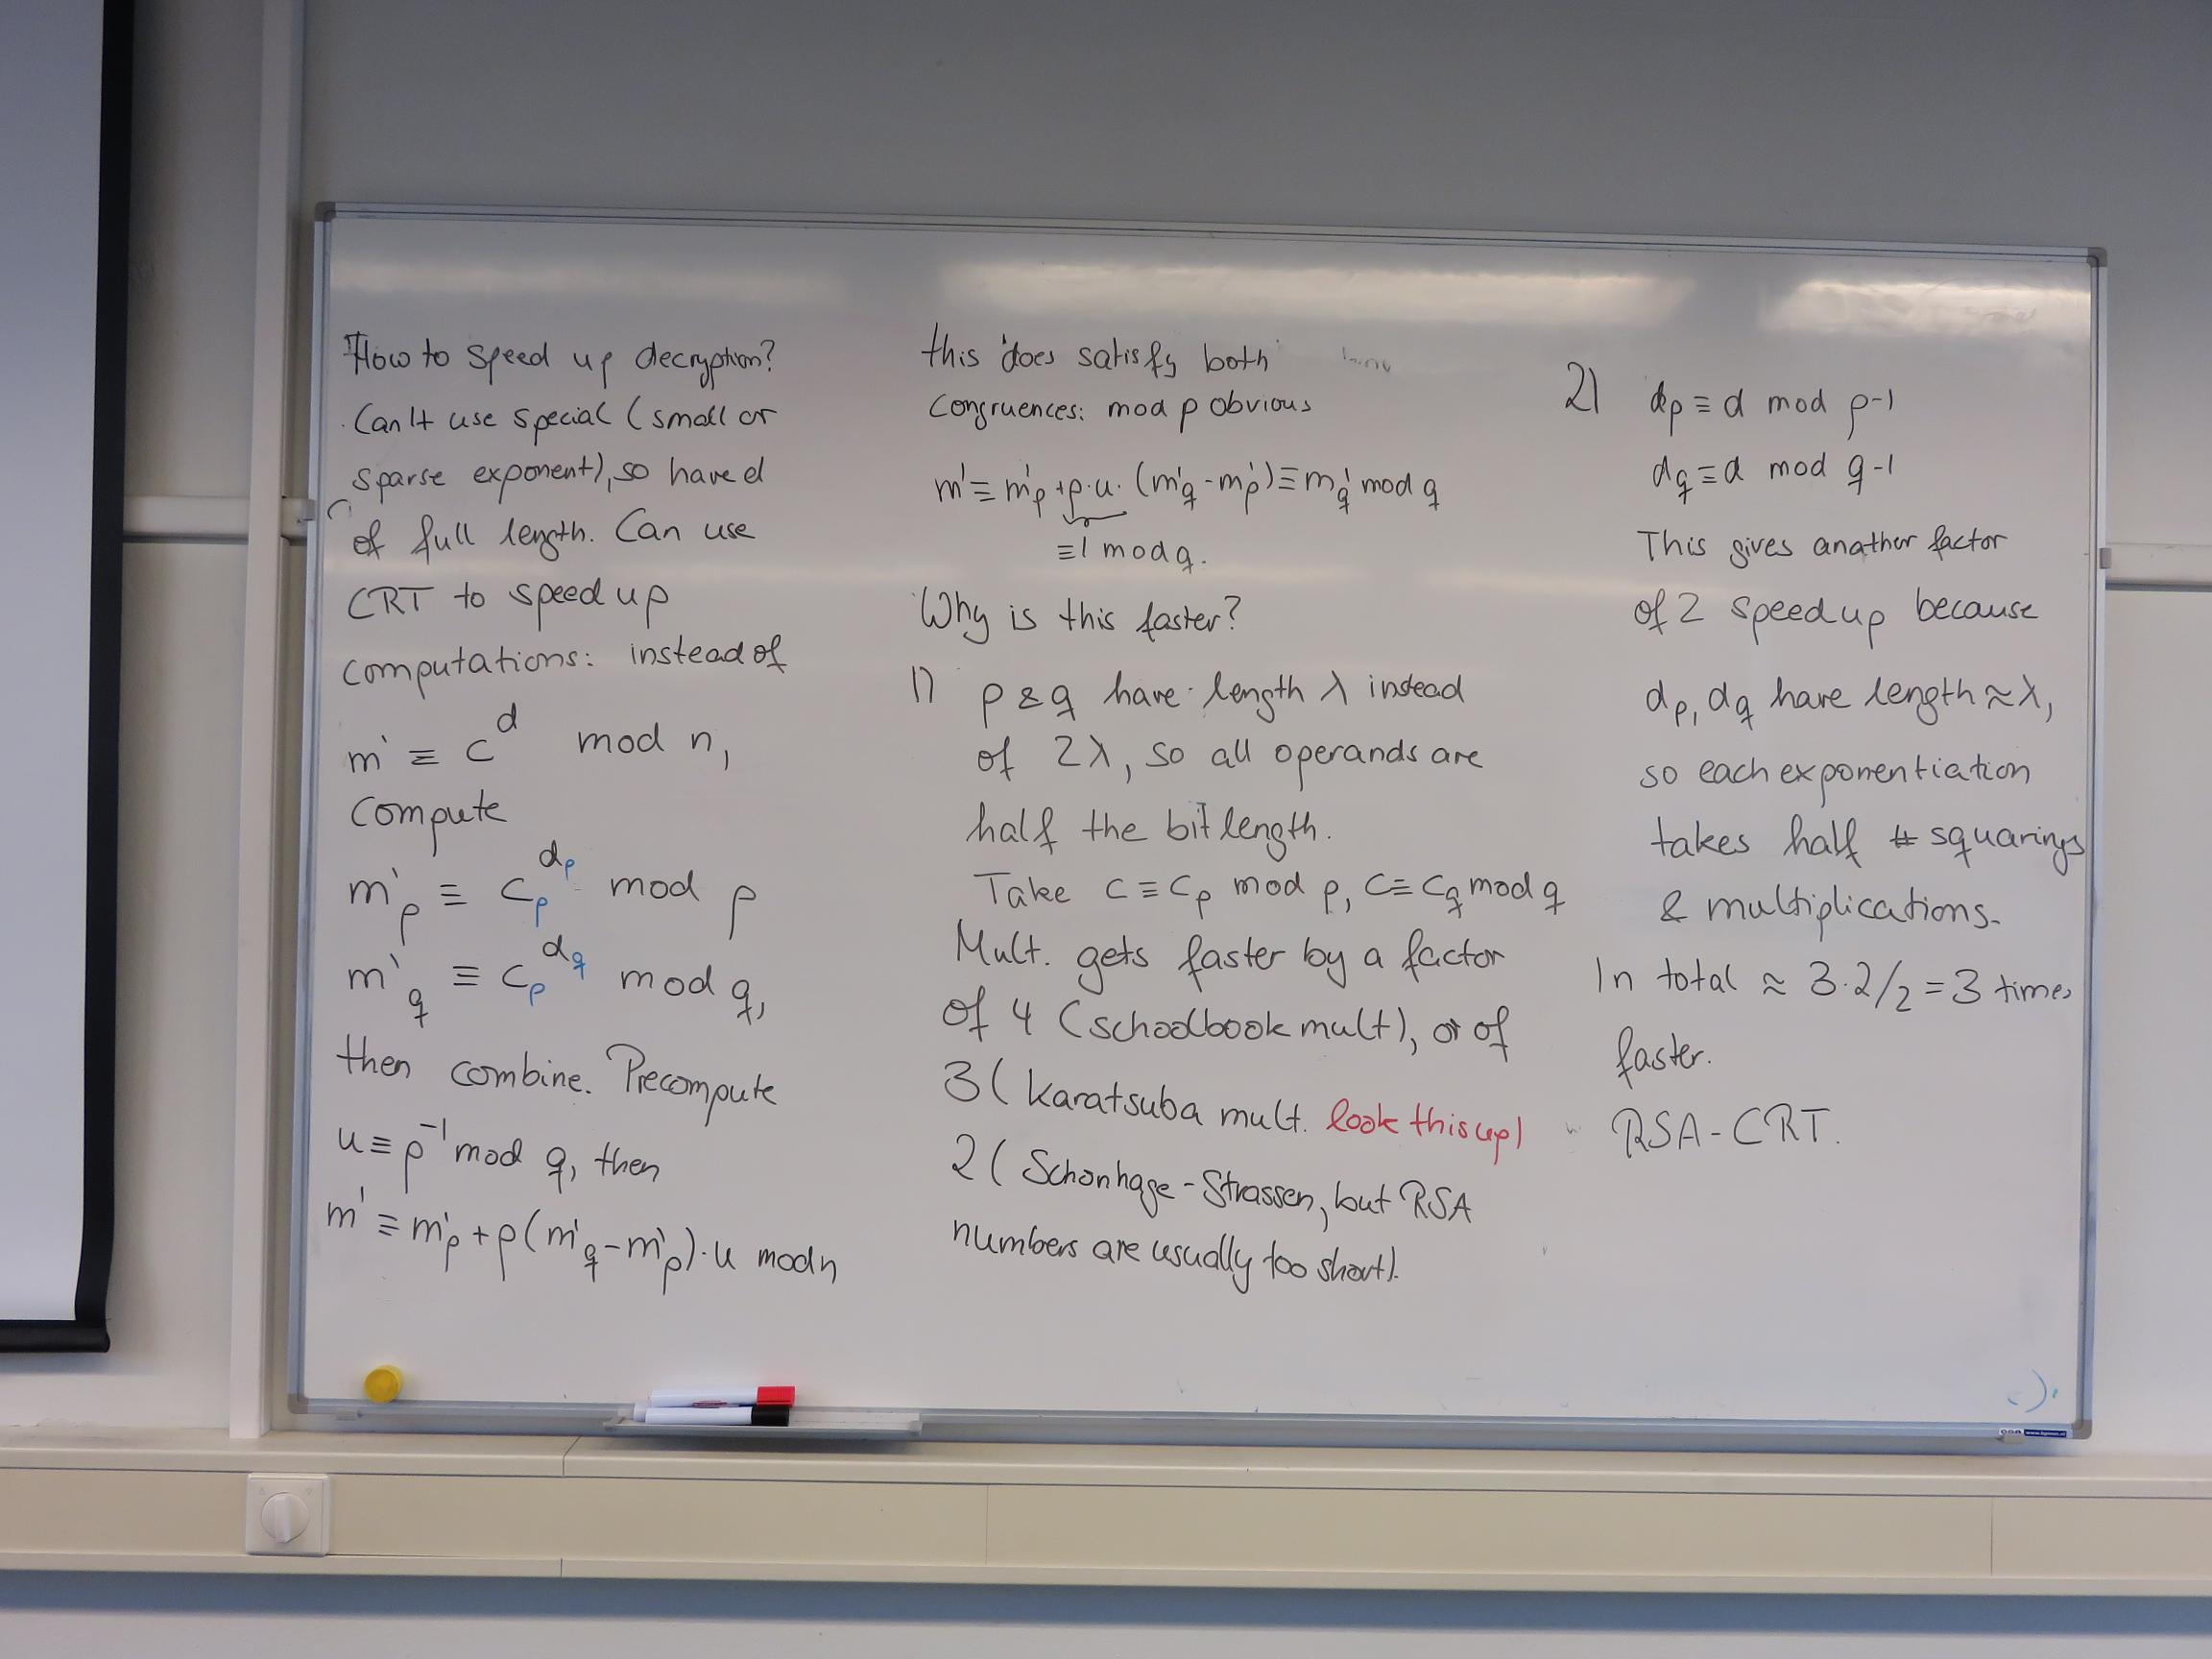 How to speed up decryption?
Can't use special (small or
sparse exponent), so have d
of full length. Can use
CRT to speed up
computations: instead of
m' ≡ c^d mod n,
compute
m'_p ≡ c_p^{d_p} mod p
m'_q ≡ c_p^{d_q} mod q,
then combine. Precompute
u ≡ p^{-1} mod q, then
m' ≡ m'_p + p(m'_q - m'_p)·u mod n
this does satisfy both
congruences: mod p obvious
m' ≡ m'_p + p·u·(m'_q - m'_p) ≡ m'_q mod q
≡ 1 mod q.
Why is this faster?
1) p & q have length λ instead
of 2λ, so all operands are
half the bit length.
Take c ≡ c_p mod p, c ≡ c_q mod q
Mult. gets faster by a factor
of 4 (schoolbook mult), or of
3 (Karatsuba mult. look this up)
2 (Schonhage-Strassen, but RSA
numbers are usually too short).
2) d_p ≡ d mod p-1
d_q ≡ d mod q-1
This gives another factor
of 2 speed up because
d_p, d_q have length ≈ λ,
so each exponentiation
takes half # squarings
& multiplications.
In total ≈ 3·2/2 = 3 times
faster.
RSA-CRT.